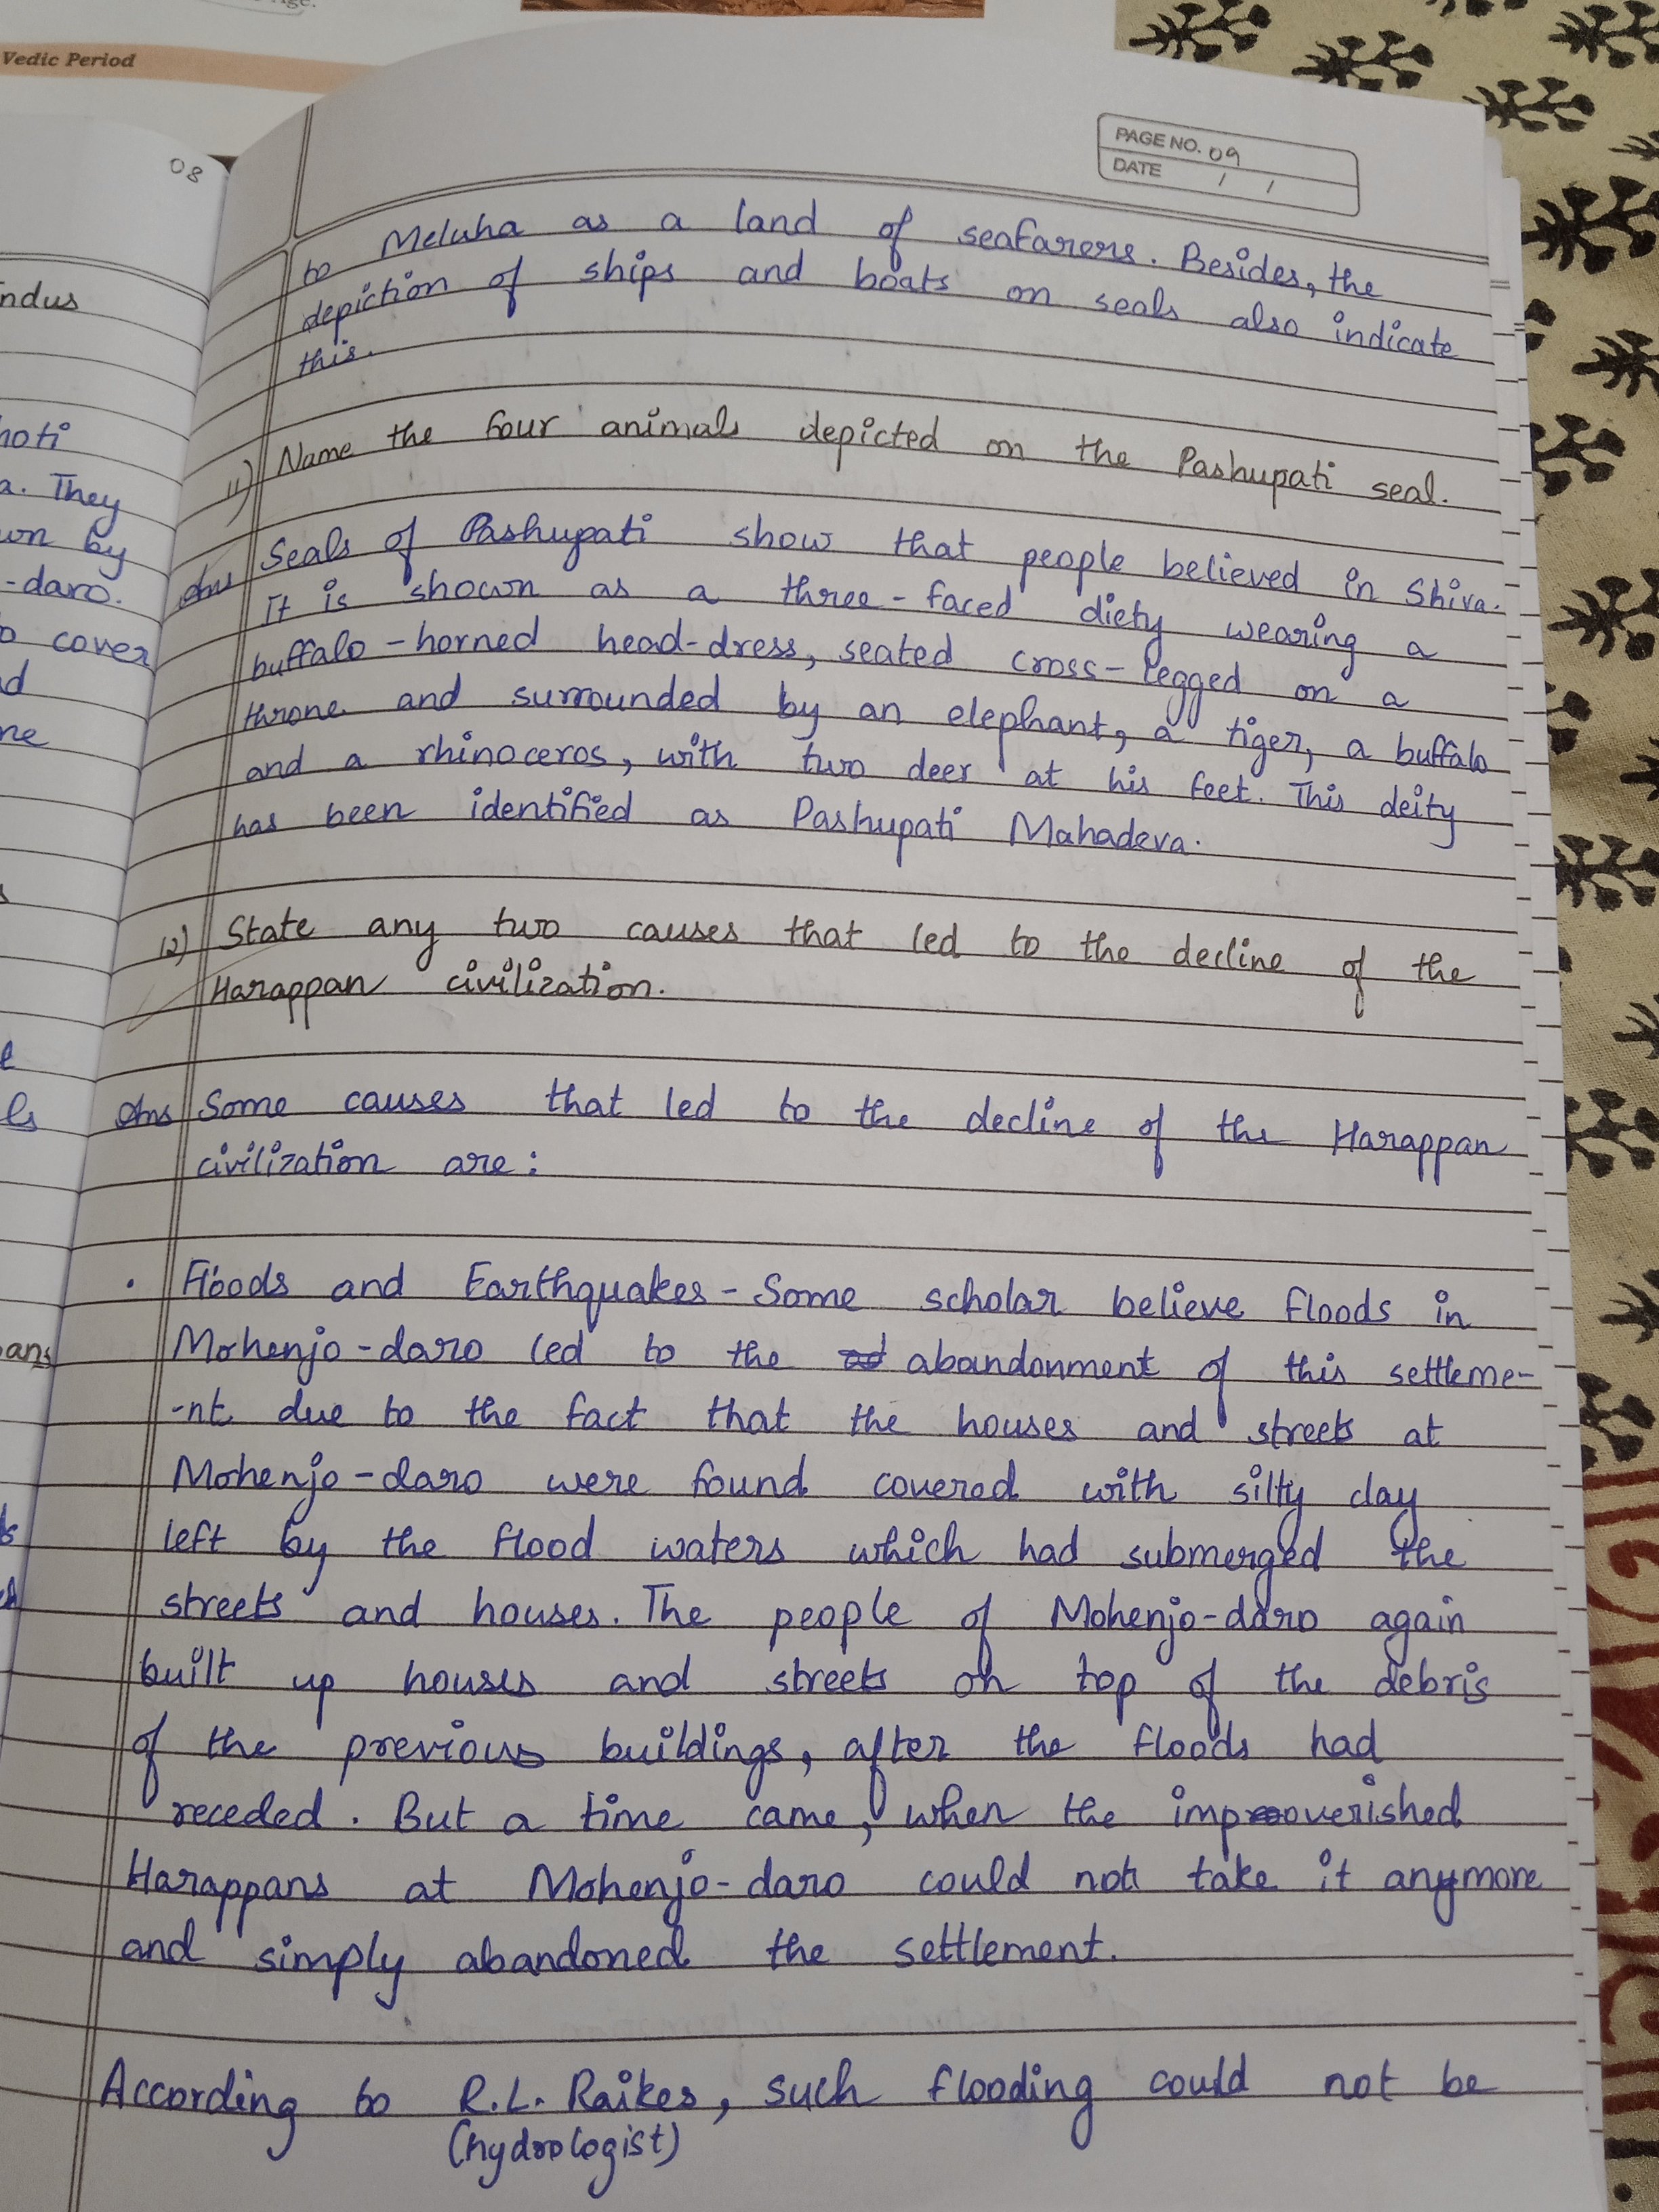 Vedic Period
08
ndus
noti
a. They
wn by
-daro.
cover
d
ne
ans
PAGE NO. 09
DATE / /
to Meluha as a land of seafarers. Besides, the
depiction of ships and boats on seals also indicate
this.
11) Name the four animals depicted on the Pashupati seal.
Ans Seals of Pashupati show that people believed in Shiva.
It is shown as a three-faced diety wearing a
buffalo-horned head-dress, seated cross-legged on a
throne and surrounded by an elephant, a tiger, a buffalo
and a rhinoceros, with two deer at his feet. This deity
has been identified as Pashupati Mahadeva.
12) State any two causes that led to the decline of the
Harappan civilization.
Ans Some causes that led to the decline of the Harappan
civilization are:
• Floods and Earthquakes - Some scholar believe floods in
Mohenjo-daro led to the abandonment of this settleme-
-nt due to the fact that the houses and streets at
Mohenjo-daro were found covered with silty clay
left by the flood waters which had submerged the
streets and houses. The people of Mohenjo-daro again
built up houses and streets on top of the debris
of the previous buildings, after the floods had
receded. But a time came, when the impoverished
Harappans at Mohenjo-daro could not take it anymore
and simply abandoned the settlement.
According to R.L. Raikes, such flooding could not be
(hydrologist)